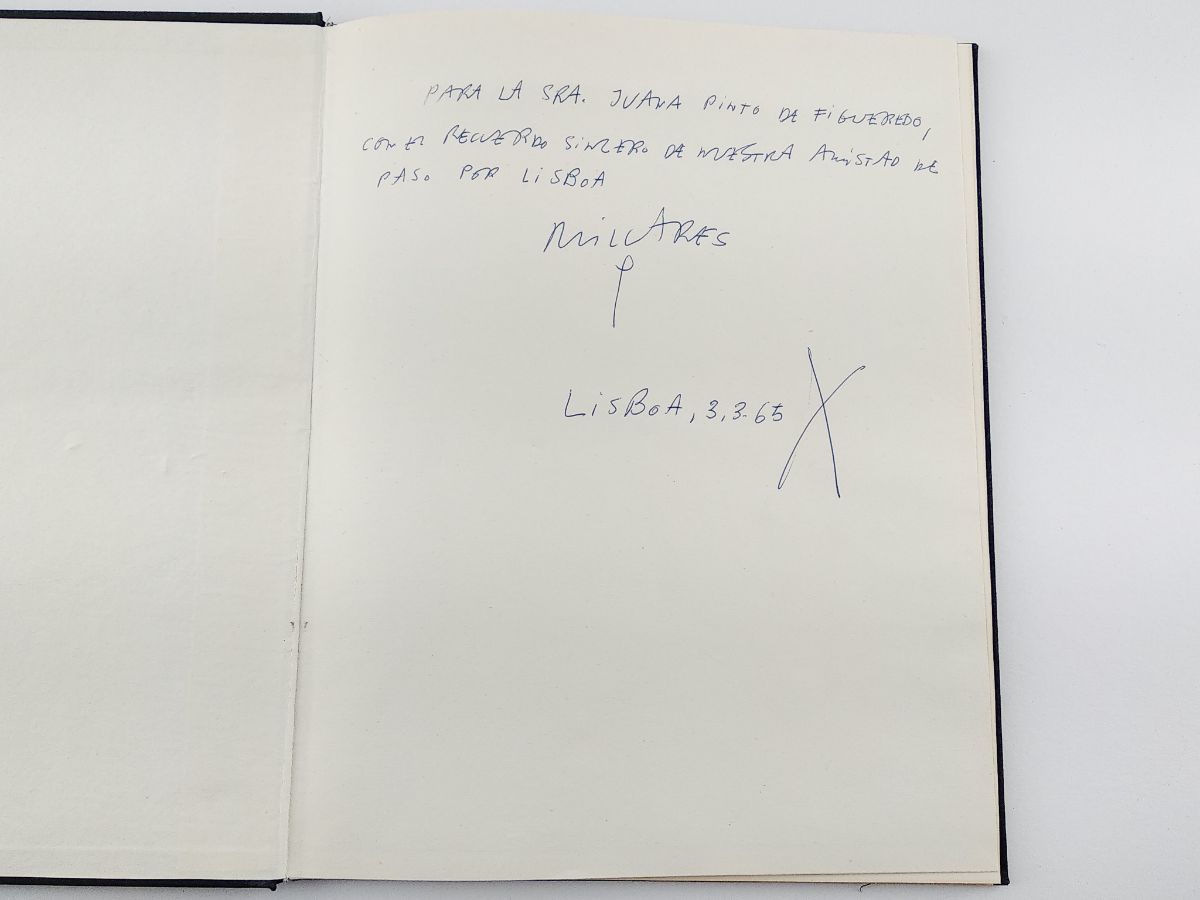 PARA LA SRA. JUANA PINTO DE FIGUEREDO,
CON EL RECUERDO SINCERO DE NUESTRA AMISTAD DE
PASO POR LISBOA
MILLARES
LISBOA, 3.3.65